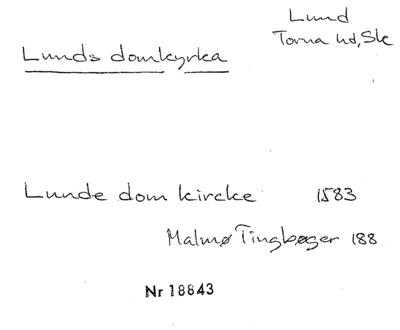 Lund
Torna hd, Sk
Lunds domkyrka
Lunde dom kircke 1583
Malmø Tingbøger 188
Nr 18843